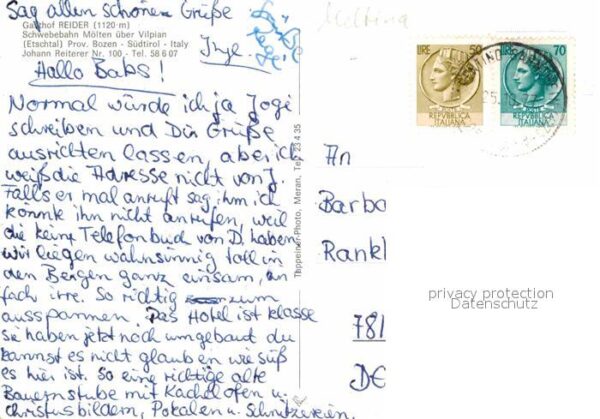 Sag allen schönen Grüße
Inge.
Gasthof REIDER (1120 m)
Schwebebahn Mölten über Vilpian
(Etschtal) Prov. Bozen - Südtirol - Italy
Johann Reiterer Nr. 100 - Tel. 58 6 07
Hallo Babs!
Normal würde ich ja Jogi
schreiben und Dir Grüße
ausrichten lassen, aber ich
weiß die Adresse nicht von J.
Falls er mal anruft sag ihm ich
könnte ihn nicht anrufen, weil
die keine Telefonbuch von D. haben
wir liegen wahnsinnig toll in
den Bergen ganz einsam, ein
fach irre. So richtig zum
ausspannen. Das Hotel ist klasse
sie haben jetzt noch umgebaut du
kannst es nicht glauben wie süß
es hier ist. So eine richtige alte
Bauernstube mit Kachelofen u.
Christusbildern, Pokalen u. Schnitzereien.
Tappeiner-Photo, Meran, Tel. 23 4 35
Meltina
LIRE 50
REPVBBLICA
ITALIANA
LIRE 70
REPVBBLICA
ITALIANA
An
Barba
Rankl
781
DE
privacy protection
Datenschutz